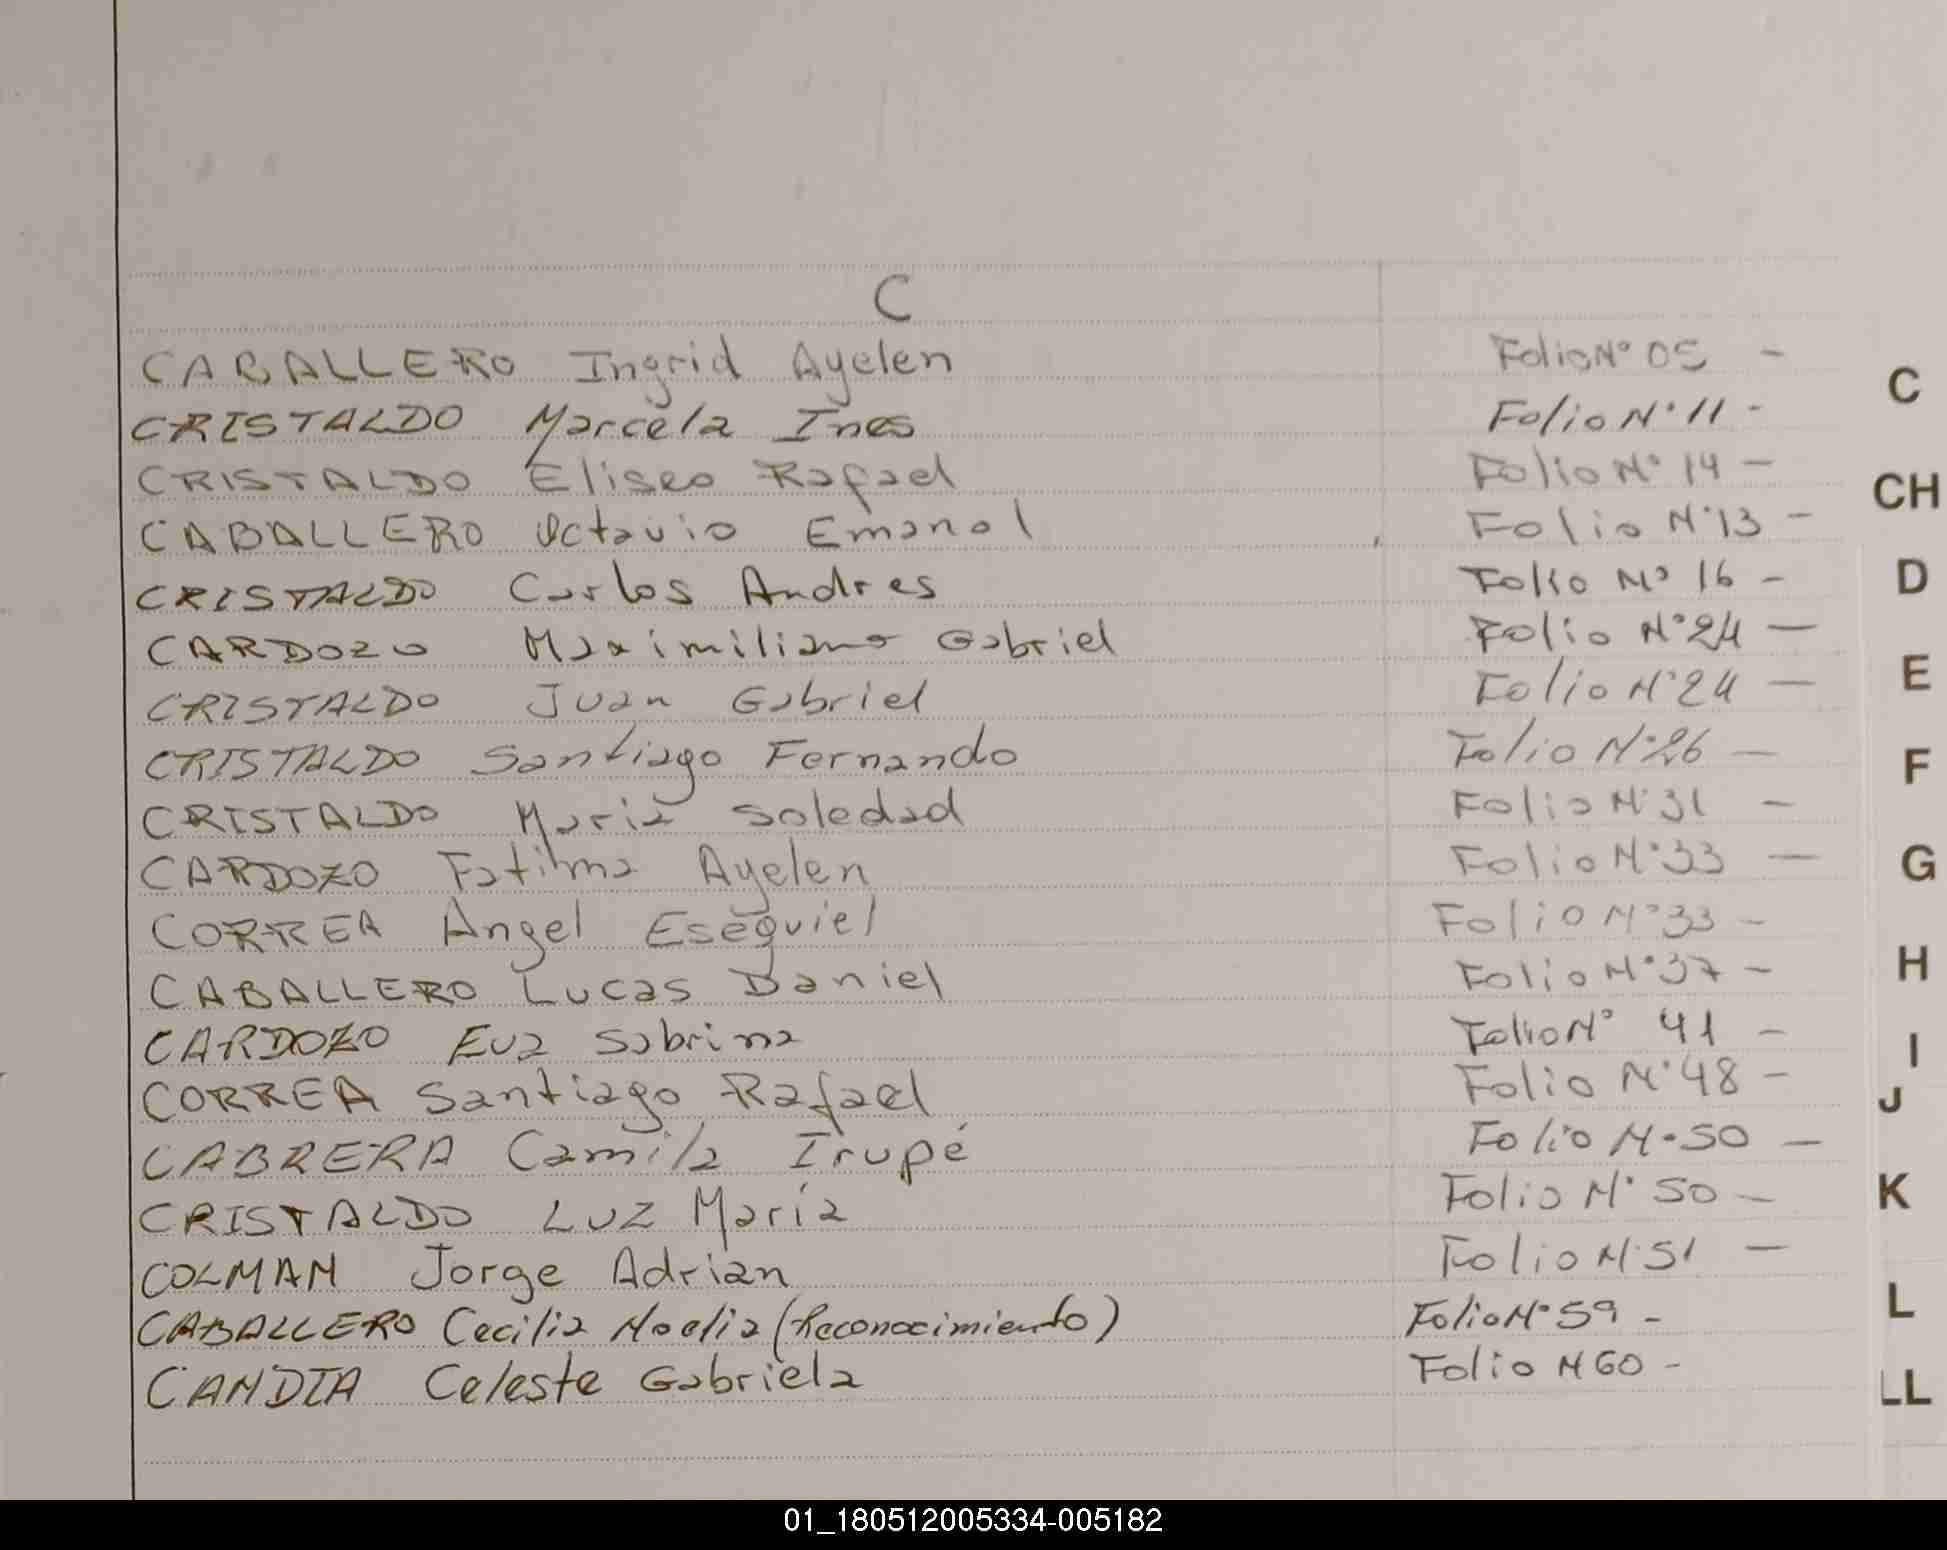 C
CABALLERO Ingrid Ayelen Folio Nº 05 -
CRISTALDO Marcela Ines Folio Nº 11 -
CRISTALDO Eliseo Rafael Folio Nº 14 -
CABALLERO Octavio Emanol Folio Nº 13 -
CRISTALDO Carlos Andres Folio Nº 16 -
CARDOZO Maximiliano Gabriel Folio Nº 24 -
CRISTALDO Juan Gabriel Folio Nº 24 -
CRISTALDO Santiago Fernando Folio Nº 26 -
CRISTALDO Maria Soledad Folio Nº 31 -
CARDOZO Fatima Ayelen Folio Nº 33 -
CORREA Angel Esequiel Folio Nº 33 -
CABALLERO Lucas Daniel Folio Nº 37 -
CARDOZO Eva Sabrina Folio Nº 41 -
CORREA Santiago Rafael Folio Nº 48 -
CABRERA Camila Irupé Folio Nº 50 -
CRISTALDO Luz María Folio Nº 50 -
COLMAN Jorge Adrian Folio Nº 51 -
CABALLERO Cecilia Noelia (Reconocimiento) Folio Nº 59 -
CANDIA Celeste Gabriela Folio N 60 -
C
CH
D
E
F
G
H
I
J
K
L
LL
01_180512005334-005182